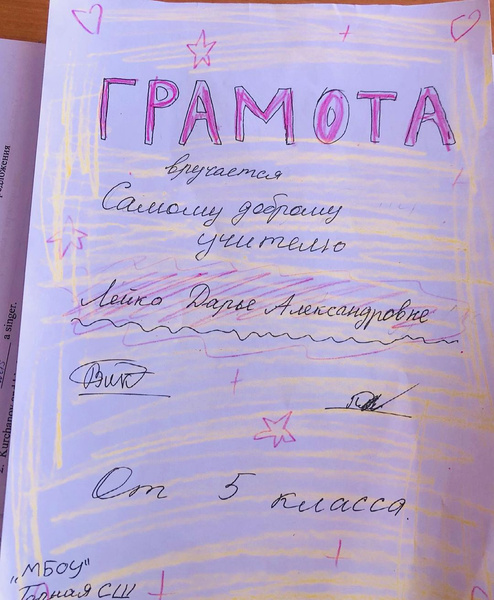 ГРАМОТА
вручается
Самому доброму
учителю
Лейко Дарье Александровне
Вик
От 5 класса.
"МБОУ"
СШ
a singer.
2. Kurchanov